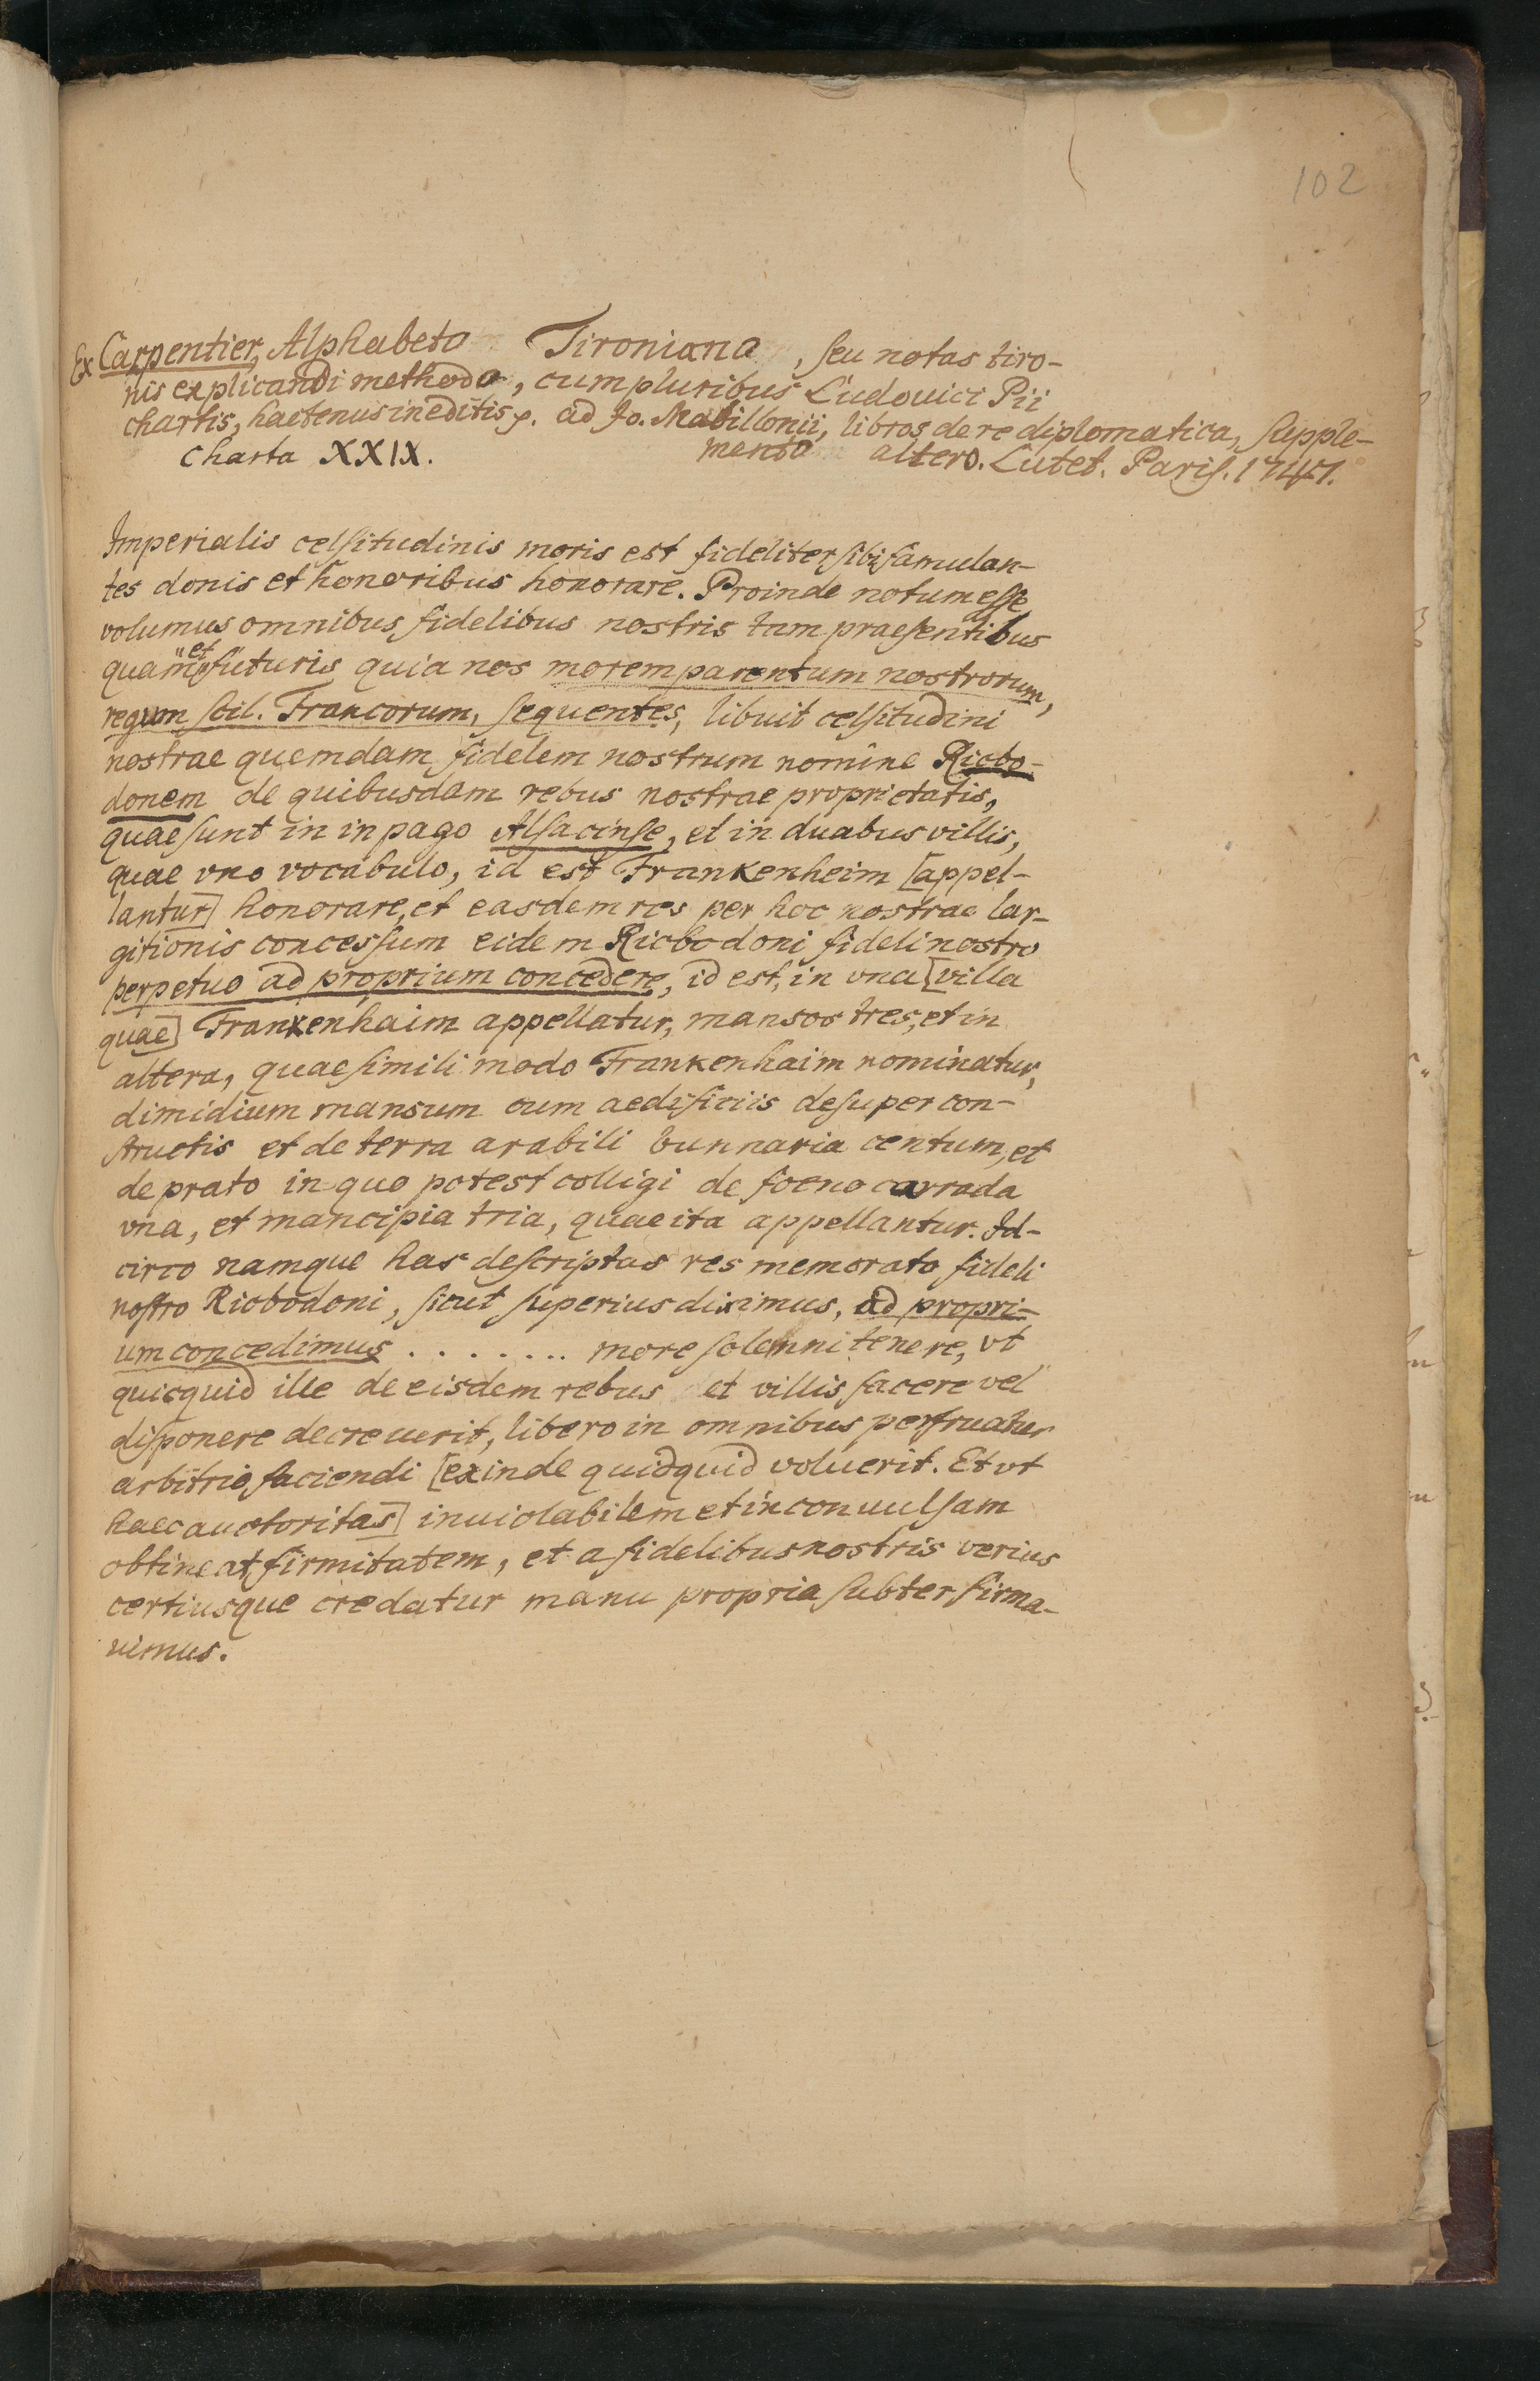 102
Ex Carpentier, Alphabeto Tironiano, seu notas tiro-
nis explicandi methodo, cum pluribus Ludouici Pii
chartis, hactenus ineditis p. ad Jo. Mabillonii, libros de re diplomatica, supple-
charta XXIX. mento altero. Lutet. Paris. 1747.
Imperialis celsitudinis moris est fideliter sibi famulan-
tes donis et honoribus honorare. Proinde notum esse
volumus omnibus fidelibus nostris tam praesentibus
quam et futuris quia nos morem parentum nostrorum,
regum scil. Francorum, sequentes, libuit celsitudini
nostrae quemdam fidelem nostrum nomine Riobo-
donem de quibusdam rebus nostrae proprietatis,
quae sunt in in pago Alsacinse, et in duabus villis,
quae vno vocabulo, id est Frankenheim [appel-
lantur] honorare, et easdem res per hoc nostrae lar-
gitionis concessum eidem Riobodoni fideli nostro
perpetuo ad proprium concedere, id est, in vna [villa
quae] Frankenhaim appellatur, mansos tres, et in
altera, quae simili modo Frankenhaim nominatur,
dimidium mansum cum aedificiis desuper con-
structis et de terra arabili bunnaria centum, et
de prato in quo potest colligi de foeno carrada
vna, et mancipia tria, quae ita appellantur. Id-
circo namque has descriptas res memorato fideli
nostro Riobodoni, sicut superius diximus, ad propri-
um concedimus . . . . . . . . more solemni tenere, vt
quicquid ille de eisdem rebus et villis facere vel
disponere decreuerit, libero in omnibus perfruatur
arbitrio faciendi [exinde quidquid voluerit. Et vt
haec auctoritas] inuiolabilem et inconuulsam
obtineat firmitatem, et a fidelibus nostris verius
certiusque credatur manu propria subter firma-
uimus.